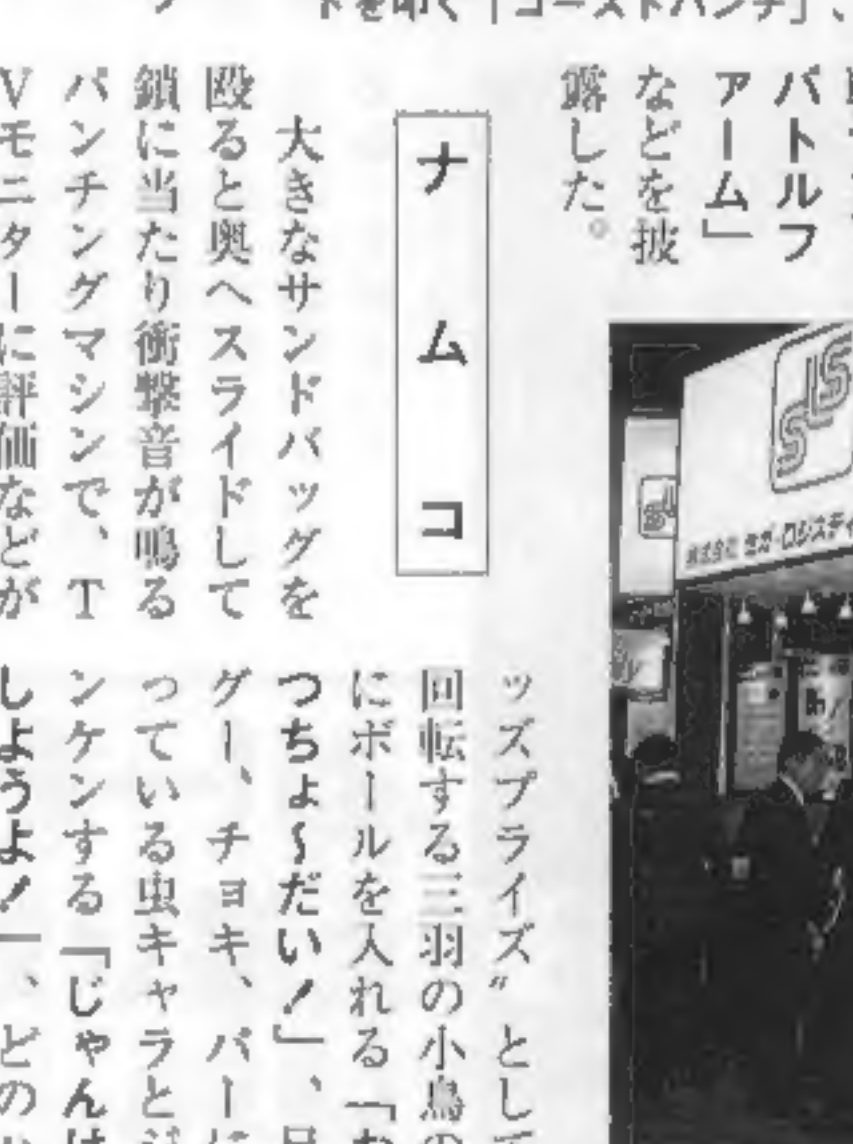 ドを叩く「ゴーストパンチ」、
バトルフ
ァーム」
などを披
露した。
ナムコ
大きなサンドバッグを
殴ると奥へスライドして
鎖に当たり衝撃音が鳴る
パンチングマシンで、T
Vモニターに評価などが
ッズプライズ〟として
回転する三羽の小鳥の
にボールを入れる「お
つちょ〜だい!」、
グー、チョキ、パーに
っている虫キャラとジ
ンケンする「じゃんけ
しようよ!」、どの
SLS
株式会社 セガ・ロジスティ